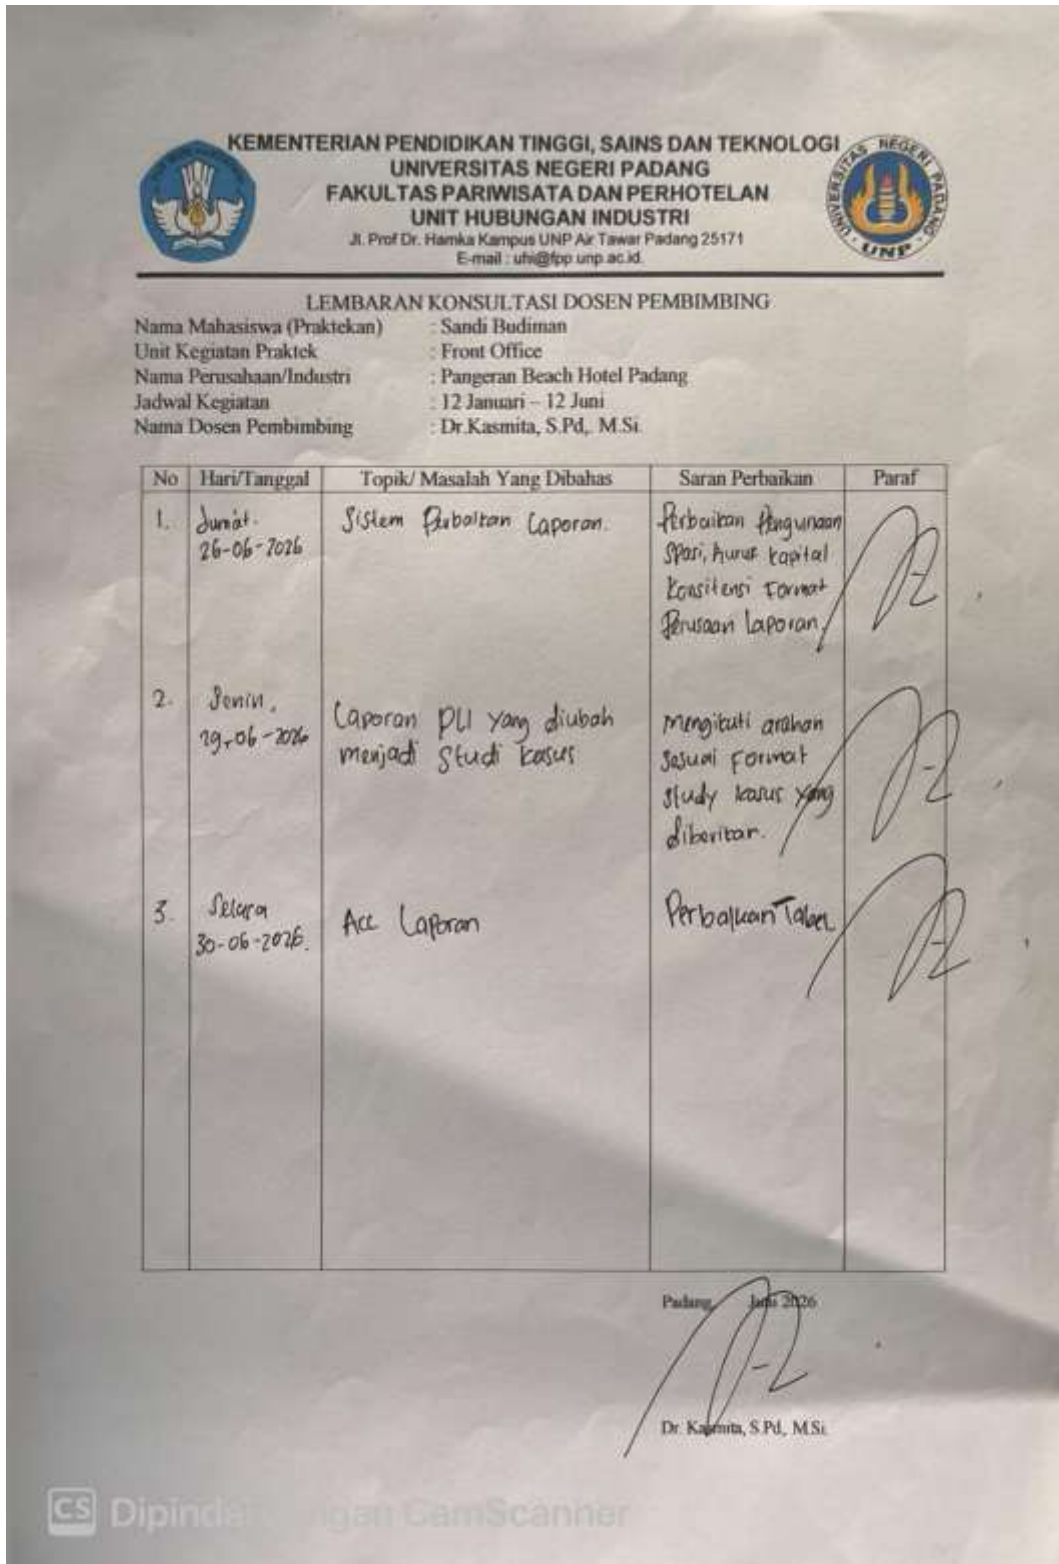 KEMENTERIAN PENDIDIKAN TINGGI, SAINS DAN TEKNOLOGI
UNIVERSITAS NEGERI PADANG
FAKULTAS PARIWISATA DAN PERHOTELAN
UNIT HUBUNGAN INDUSTRI
Jl. Prof Dr. Hamka Kampus UNP Air Tawar Padang 25171
E-mail : uhi@fpp.unp.ac.id.
UNIVERSITAS NEGERI PADANG
UNP
LEMBARAN KONSULTASI DOSEN PEMBIMBING
Nama Mahasiswa (Praktekan) : Sandi Budiman
Unit Kegiatan Praktek : Front Office
Nama Perusahaan/Industri : Pangeran Beach Hotel Padang
Jadwal Kegiatan : 12 Januari – 12 Juni
Nama Dosen Pembimbing : Dr.Kasmita, S.Pd,. M.Si.
No Hari/Tanggal Topik/ Masalah Yang Dibahas Saran Perbaikan Paraf
1. Jumat. Sistem Laporan. Perbaikan
26-06-2026 Spasi, huruf kapital
Format
Laporan
2. Senin, Laporan PLI yang diubah mengikuti arahan
29-06-2026 menjadi Studi kasus sesuai Format
study kasus yang
diberikan.
3. Selasa Acc Laporan Perbaikan Tabel
30-06-2026.
Padang, Juni 2026
Dr. Kasmita, S.Pd,. M.Si.
CS Dipindai dengan CamScanner